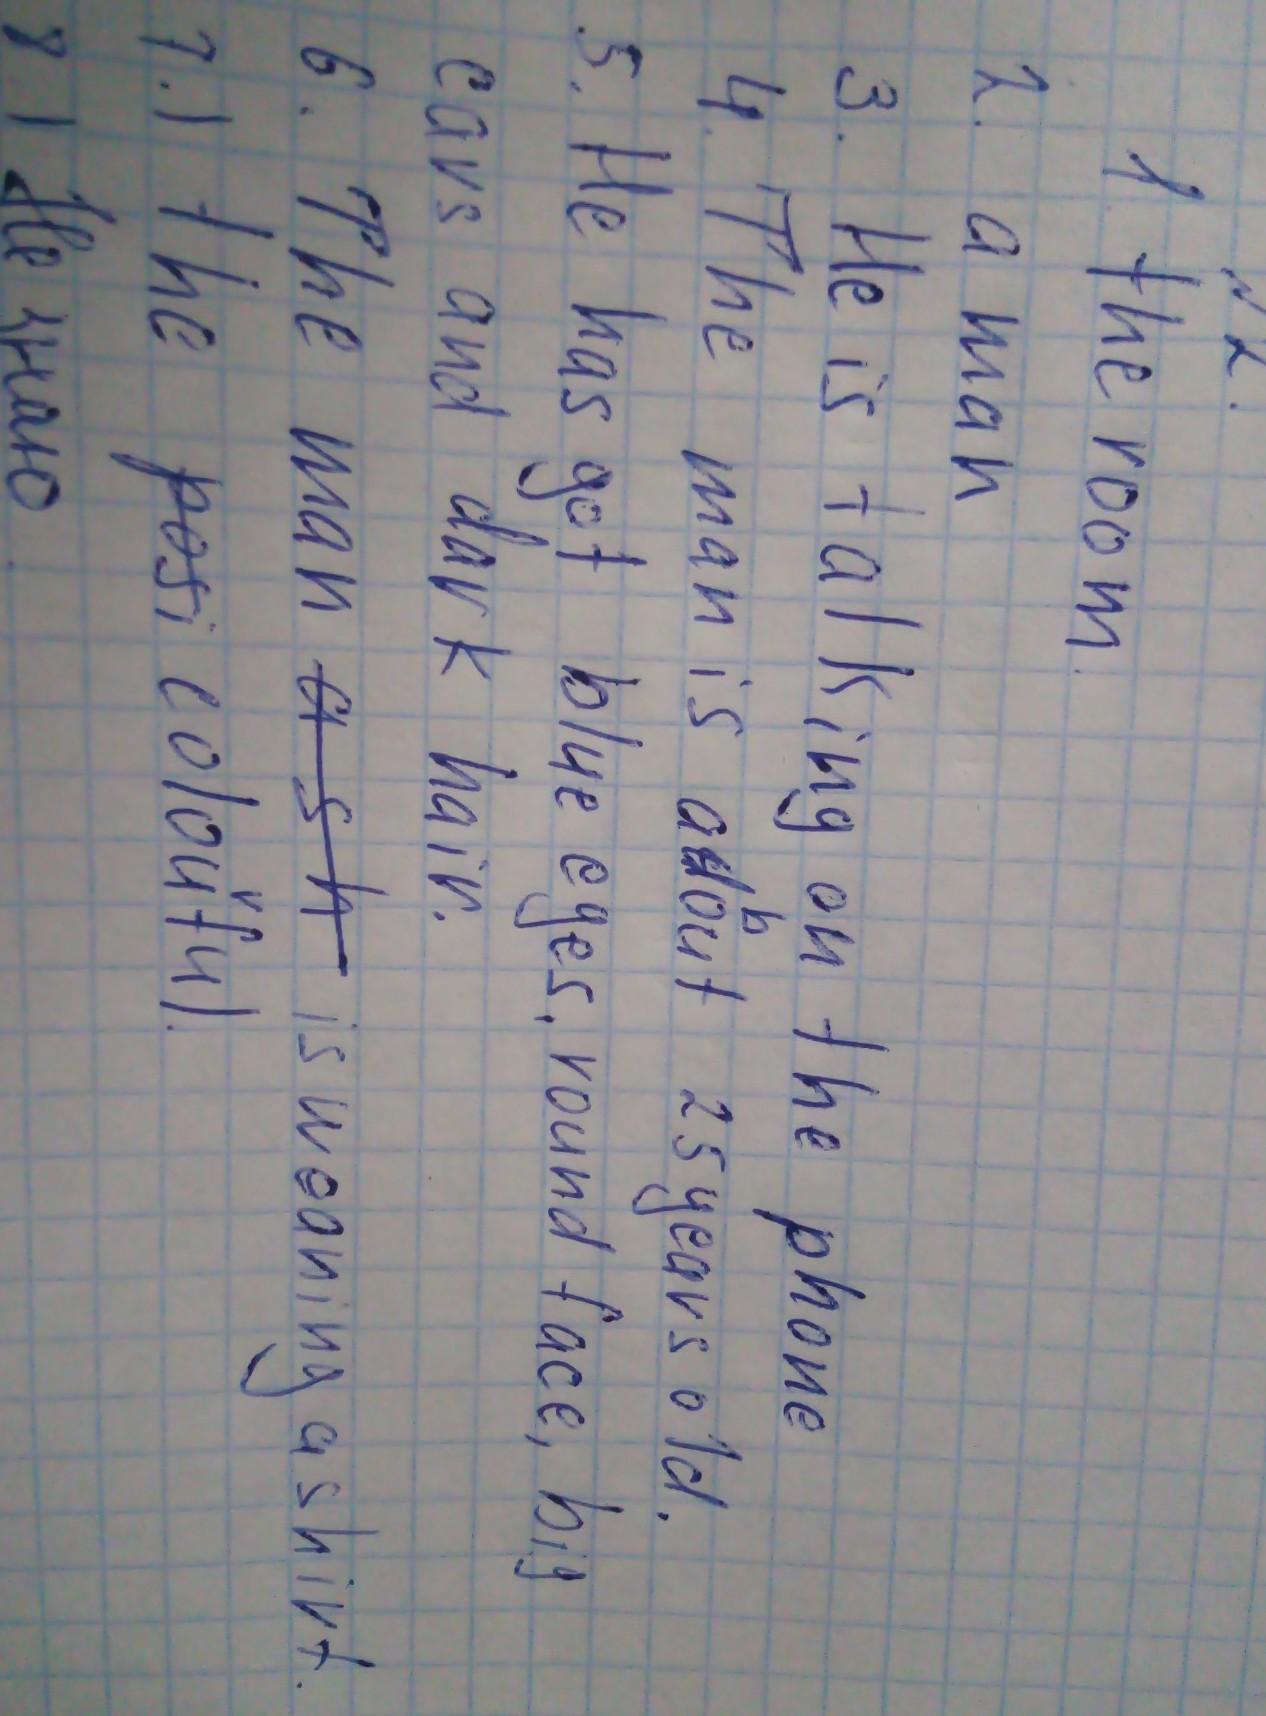 №2.
1. the room.
2. a man
3. He is talking on the phone
4. The man is about 25 years old.
5. He has got blue eges, round face, big
ears and dark hair.
6. The man is weaning a shirt.
7. I the posi colourful.
8. I Не знаю